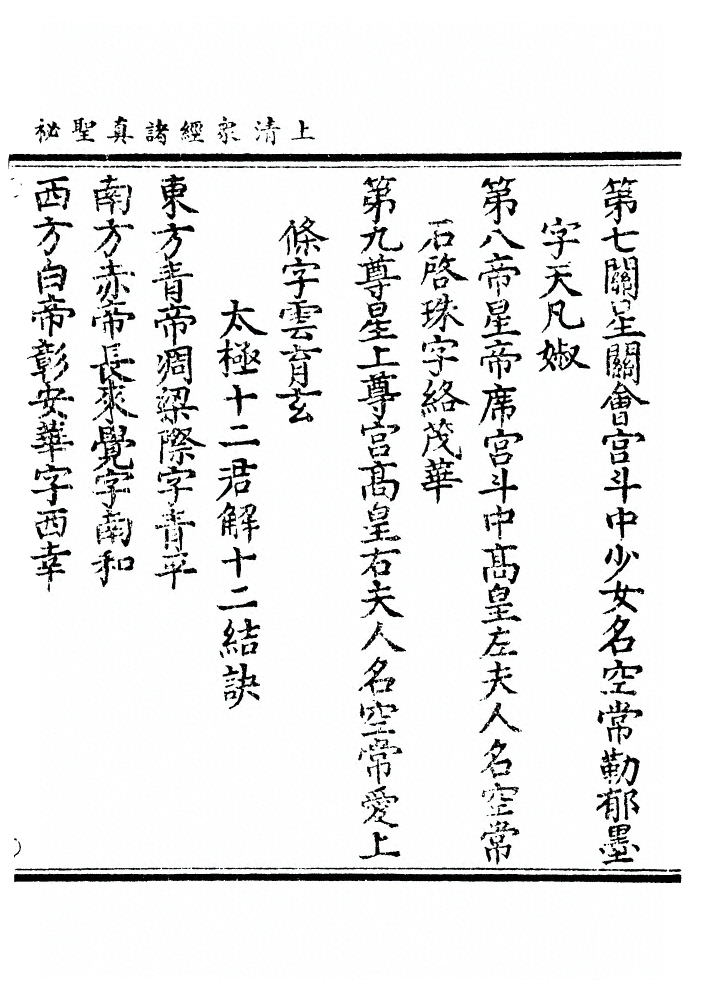 上清衆經諸真聖祕
第七關星關會宫斗中少女名空常勒郁墨
字天凡婌
第八帝星帝席宫斗中髙皇左夫人名空常
石啓珠字絡茂華
第九尊星上尊宫髙皇右夫人名空常愛上
條字雲育玄
太極十二君解十二結訣
東方青帝凋梁際字青平
南方赤帝長來覺字南和
西方白帝彰安華字西幸